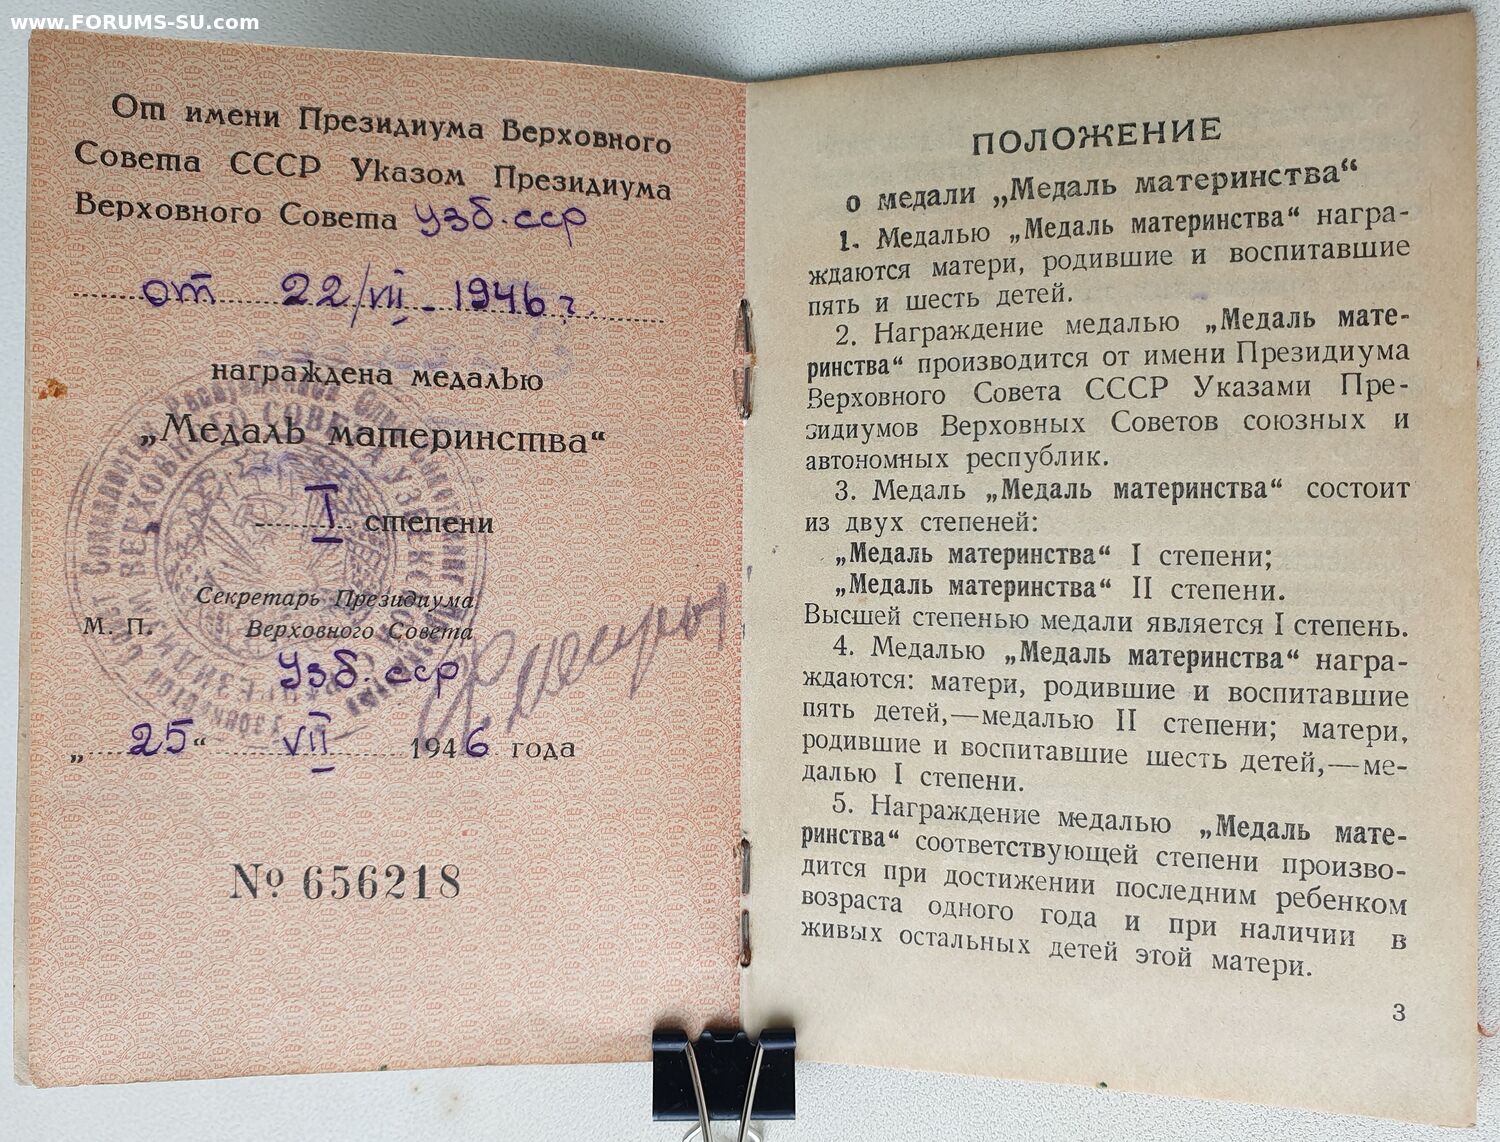 www.FORUMS-SU.com
От имени Президиума Верховного
Совета СССР Указом Президиума
Верховного Совета Узб. сср
от 22/VII - 1946 г.
награждена медалью
„Медаль материнства“
I степени
Секретарь Президиума
М. П. Верховного Совета
Узб. сср
„25“ VII 1946 года
№ 656218
ПОЛОЖЕНИЕ
о медали „Медаль материнства“
1. Медалью „Медаль материнства“ награ-
ждаются матери, родившие и воспитавшие
пять и шесть детей.
2. Награждение медалью „Медаль мате-
ринства“ производится от имени Президиума
Верховного Совета СССР Указами Пре-
зидиумов Верховных Советов союзных и
автономных республик.
3. Медаль „Медаль материнства“ состоит
из двух степеней:
„Медаль материнства“ I степени;
„Медаль материнства“ II степени.
Высшей степенью медали является I степень.
4. Медалью „Медаль материнства“ награ-
ждаются: матери, родившие и воспитавшие
пять детей,—медалью II степени; матери,
родившие и воспитавшие шесть детей,—ме-
далью I степени.
5. Награждение медалью „Медаль мате-
ринства“ соответствующей степени произво-
дится при достижении последним ребенком
возраста одного года и при наличии в
живых остальных детей этой матери.
3